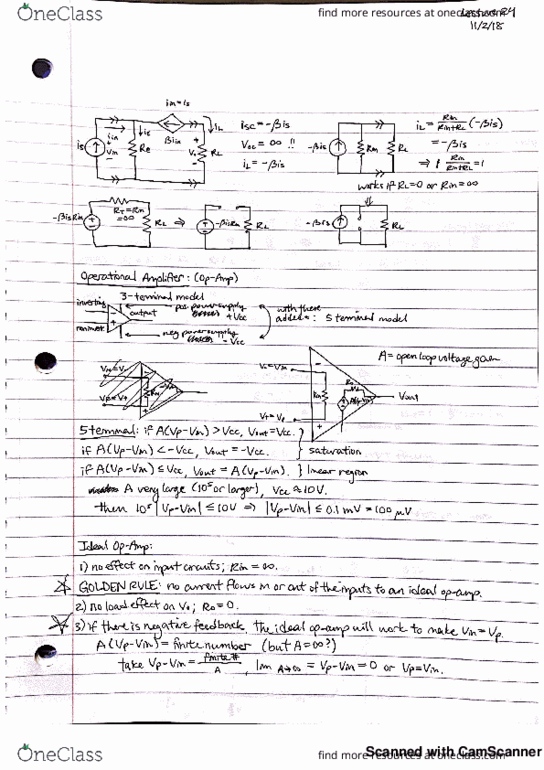 OneClass
find more resources at oneclass.com
Lecture 24
11/2/18
im=is
is
iin
Vin
Re
βiin
Vo
RL
iL
isc = -βis
Voc = ∞ !!
iL = -βis
-βis
Rin
RL
iL = Rin/(Rin+RL) (-βis)
= -βis
⇒ if Rin/(Rin+RL) = 1
works if RL=0 or Rin=∞
-βisRin
RT=Rin
=∞
RL
⇒
-βisRin
RL
-βis
RL
Operational Amplifier: (Op-Amp)
3-terminal model
inverting
noninver
output
pos power supply
+Vcc
neg power supply
-Vcc
with these
added: 5 terminal model
A= open loop voltage gain
V-=Vin
V+=Vp
Rin
Ro
Vout
5 terminal: if A(Vp-Vin) > Vcc, Vout=Vcc.
if A(Vp-Vin) < -Vcc, Vout = -Vcc.
} saturation
if A(Vp-Vin) ≤ Vcc, Vout = A(Vp-Vin). } linear region
A very large (10⁵ or larger), Vcc ≈ 10V.
then 10⁵ |Vp-Vin| ≤ 10V ⇒ |Vp-Vin| ≤ 0.1 mV = 100 μV
Ideal Op-Amp:
1) no effect on input circuits; Rin = ∞.
GOLDEN RULE: no current flows in or out of the inputs to an ideal op-amp.
2) no load effect on Vo; Ro = 0.
3) if there is negative feedback, the ideal op-amp will work to make Vin = Vp.
A(Vp-Vin) = finite number (but A=∞?)
take Vp-Vin = finite #/A, lim A→∞ = Vp-Vin = 0 or Vp=Vin.
OneClass
find more resources at oneclass.com
Scanned with CamScanner